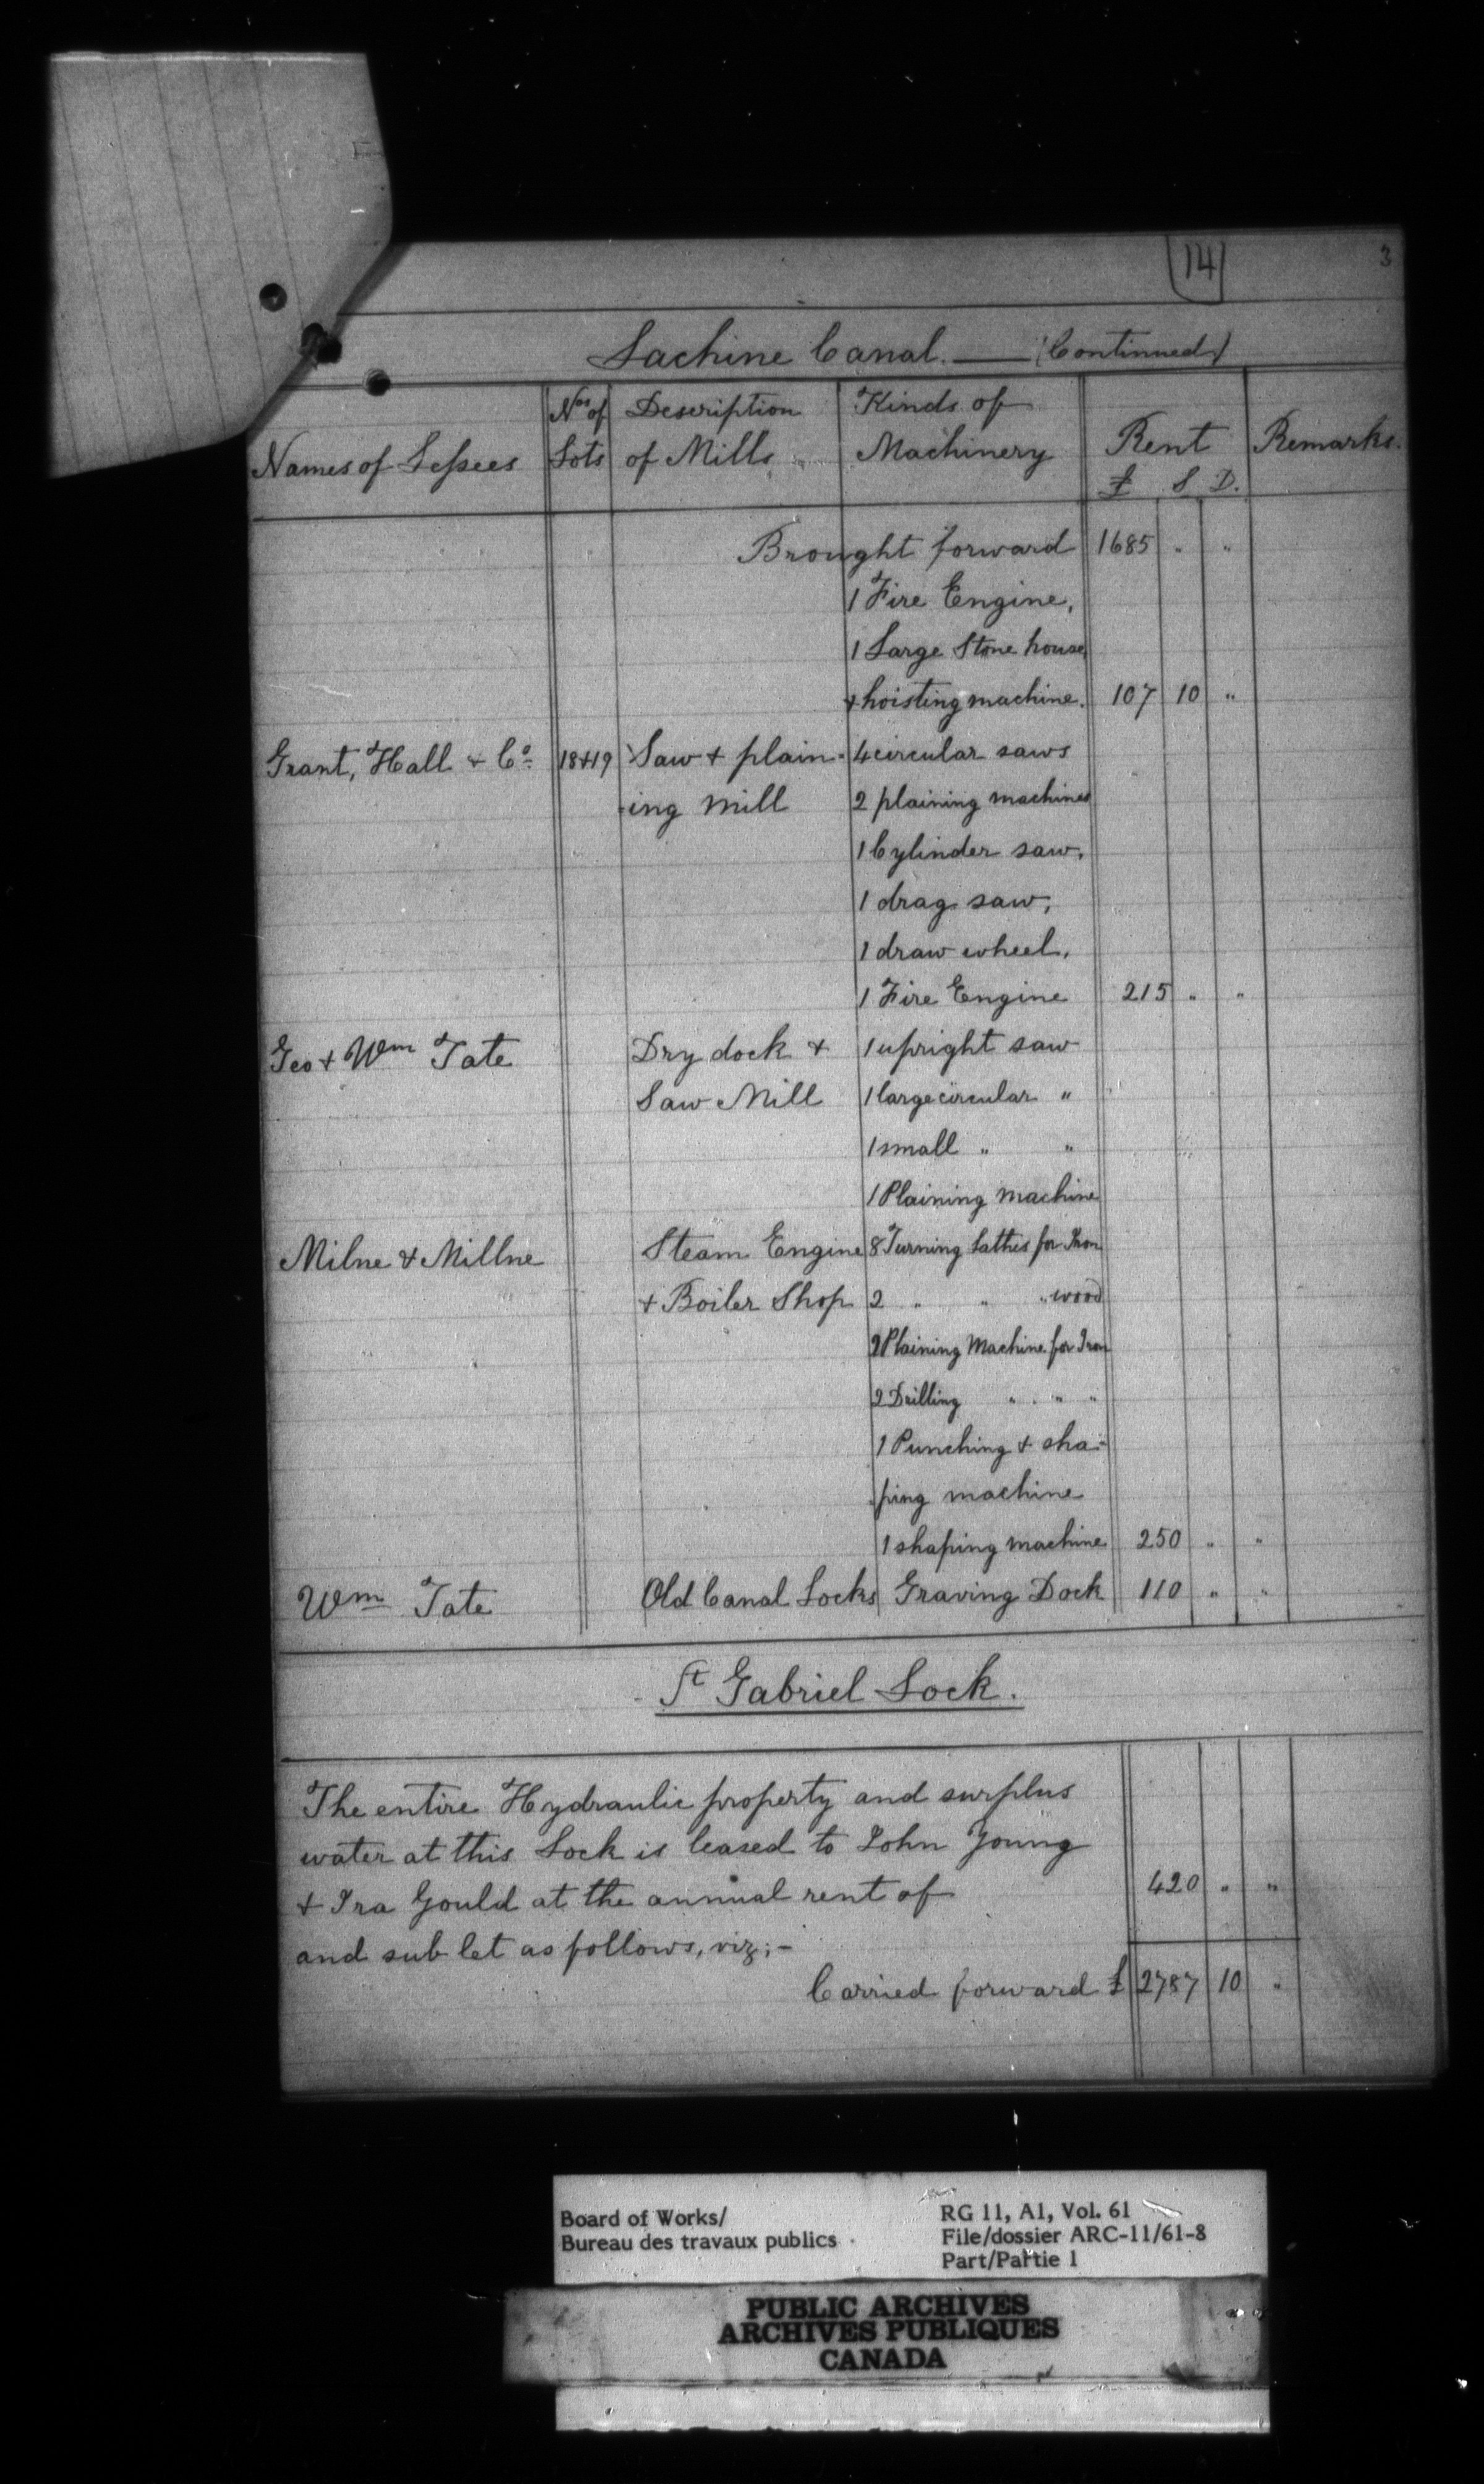 14
3
Lachine Canal. — (Continued)
Names of Lessees | Nos of Lots | Description of Mills | Kinds of Machinery | Rent £ S D. | Remarks.
Brought forward 1685 " "
1 Fire Engine,
1 Large Stone house,
+ hoisting machine. 107 10 "
Grant, Hall + Co. 18+19 Saw + plain- 4 circular saws
-ing Mill 2 plaining machines
1 Cylinder saw,
1 drag saw,
1 draw wheel,
1 Fire Engine 215 " "
Geo + Wm Tate Dry dock + 1 upright saw
Saw Mill 1 large circular "
1 small " "
1 Plaining machine
Milne & Millne Steam Engine 8 Turning Lathes for Iron
+ Boiler Shop 2 " " " wood
2 Plaining Machine for Iron
2 Drilling " " "
1 Punching + sha-
-ping machine
1 shaping machine 250 " "
Wm Tate Old Canal Locks Graving Dock 110 " "
St Gabriel Lock.
The entire Hydraulic property and surplus
water at this Lock is leased to John Young
+ Ira Gould at the annual rent of 420 " "
and sub let as follows, viz; -
Carried forward £ 2787 10 "
Board of Works/
Bureau des travaux publics
RG 11, A1, Vol. 61
File/dossier ARC-11/61-8
Part/Partie 1
PUBLIC ARCHIVES
ARCHIVES PUBLIQUES
CANADA